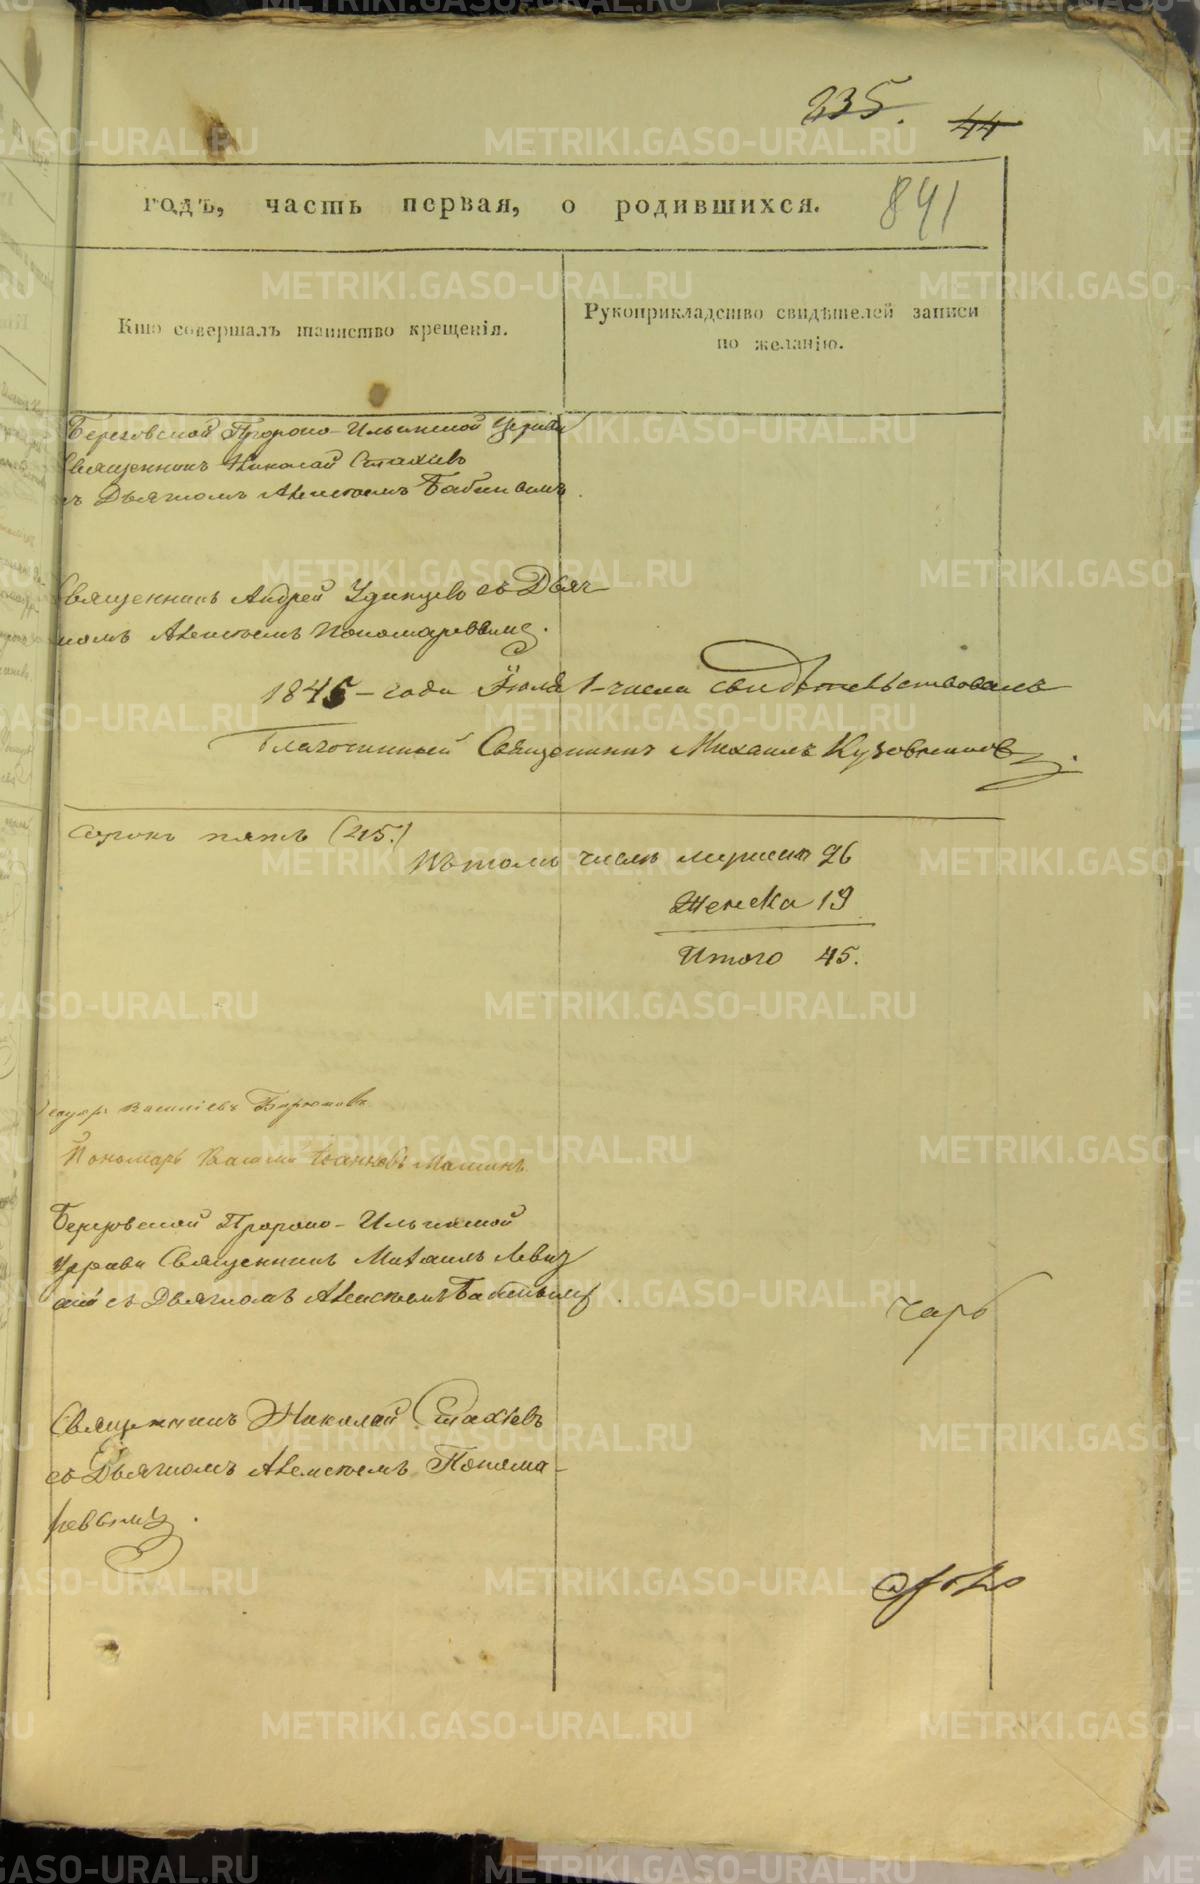 235. 44
годъ, часть первая, о родившихся. 841
Кто совершалъ таинство крещенія.
Рукоприкладство свидѣтелей записи
по желанію.
Березовской Пророко-Ильинской Церкви
Священникъ Николай Стахіевъ
съ Дьячкомъ Алексѣемъ
Священникъ Андрей Удинцевъ съ Дьяч
комъ Алексѣемъ Пономаревымъ.
1845 - года Іюля 1 - числа свидѣтельствовалъ
Благочинный Священникъ Михаилъ
Сорокъ пять (45.)
Въ томъ числѣ мужска 26
Женска 19
Итого 45.
Пономарь
Березовской Пророко-Ильинской
Церкви Священникъ Михаилъ Левиц
кій съ Дьячкомъ Алексѣемъ
Священникъ Николай Стахіевъ
съ Дьячкомъ Алексѣемъ Понома-
ревымъ.
METRIKI.GASO-URAL.RU